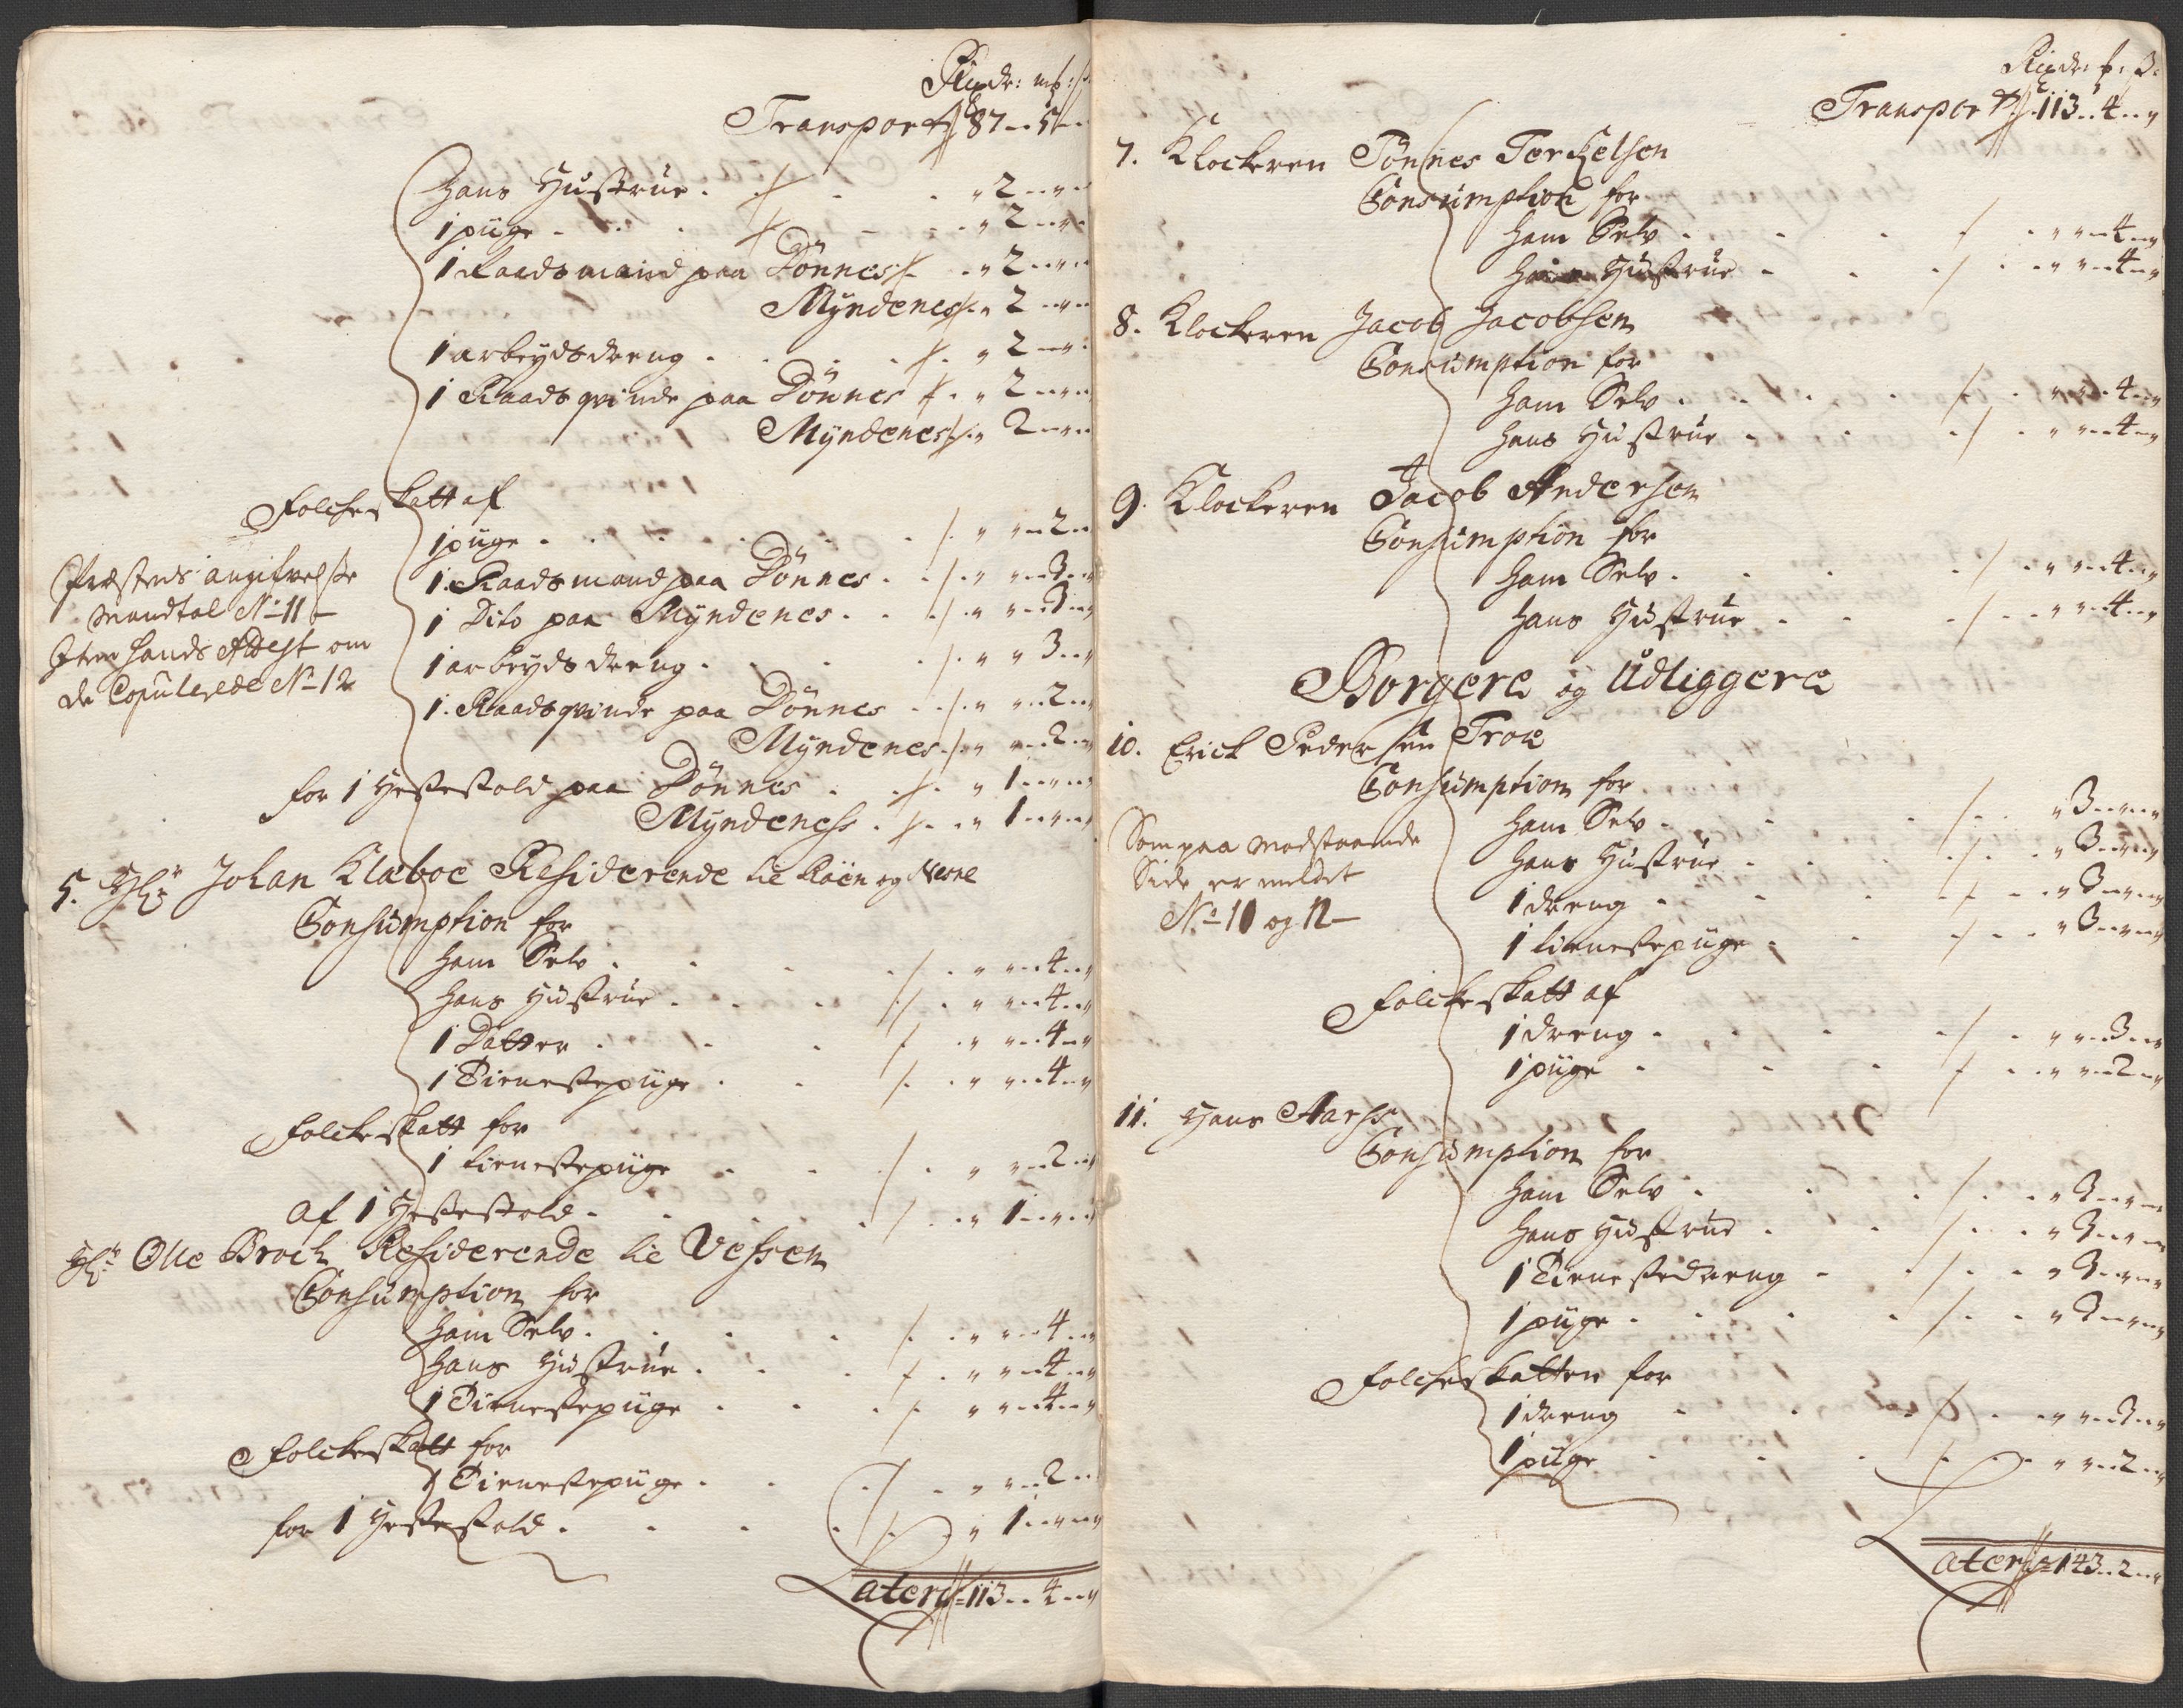 Rixdr: mꝭ: ß
Transport 87 „ 5 „
Hans Hustrue . „ 2 „ „
1 pige . „ 2 „ „
1 Raadsmand paa Dönnes „ 2 „ „
Myndenes „ 2 „ „
1 arbeydsdreng . „ 2 „ „
1 Raadsqvinde paa Dönnes „ 2 „ „
Myndenes „ 2 „ „
Folcheskatt af
1 pige . „ „ 2 „
1 Raadsmand paa Dönnes . „ „ 3 „
1 Dito paa Myndenes . „ „ 3 „
1 arbeyds dreng . „ „ 3 „
1 Raadsqvinde paa Dönnes „ „ 2 „
Myndenes „ „ 2 „
Præstens angifvelse
Mandtal No 11
Item hands Attest om
de Copulerede No 12
for 1 Hestestold paa Dönnes . „ 1 „ „
Myndenes . „ 1 „ „
5. Hr: Johan Klæboe Residerende til Röen og Nerne
Consumption for
Ham Selv . „ „ 4 „
Hans Hustrue . „ „ 4 „
1 Datter . „ „ 4 „
1 Tienestepige . „ „ 4 „
Folckeskatt for
1 tienestepige . „ „ 2 „
Af 1 Hestestold . „ 1 „ „
Hr: Olle Broch Residerende til Vefsen
Consumption for
Ham Selv . „ „ 4 „
Hans Hustrue . „ „ 4 „
1 Tienestepige . „ „ 4 „
Folckeskatt for
1 Tienestepige . „ „ 2 „
for 1 Hestestold . „ 1 „ „
Lateris 113 „ 4 „
Rixdr: ꝭ: ß:
Transport 113 „ 4 „
7. Klockeren Tönnes Terchelsen
Consumption for
Ham Selv . „ „ 4 „
Hans Hustrue . „ „ 4 „
8. Klockeren Jacob Jacobsen
Consumption for
Ham Selv . „ „ 4 „
Hans Hustrue . „ „ 4 „
9. Klockeren Jacob Andersen
Consumption for
Ham Selv . „ „ 4 „
Hans Hustrue . „ „ 4 „
Borgere og Udliggere
10. Erick Pedersen Troe
Consumption for
Ham Selv . „ 3 „ „
Hans Hustrue . „ 3 „ „
1 dreng . „ 3 „ „
1 tienestepige . „ 3 „ „
Som paa modstaaende
Side er meldet
No 11 og 12
Folckeskatt af
1 dreng . „ „ 3 „
1 pige . „ „ 2 „
11. Hans Aarss
Consumption for
Ham Selv . „ 3 „ „
Hans Hustrue . „ 3 „ „
1 Tienestedreng . „ 3 „ „
1 pige . „ 3 „ „
Folcheskatten for
1 dreng . „ „ 3 „
1 pige . „ „ 2 „
Lateris 143 „ 2 „